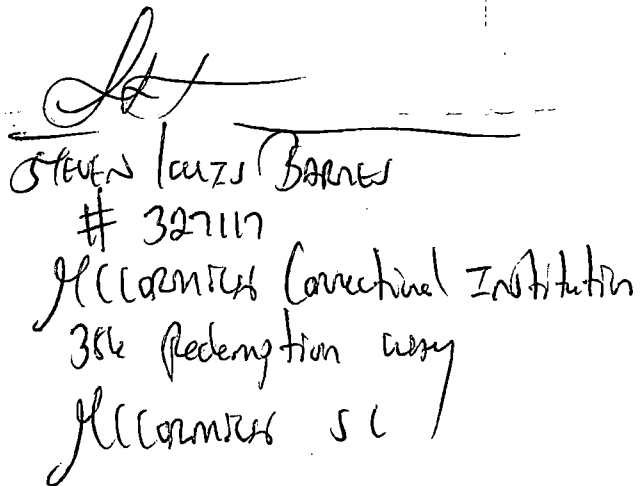 STEVEN LOUIS BARNES
# 327117
MCCORMICK Correctional Institution
386 Redemption way
MCCORMICK SC